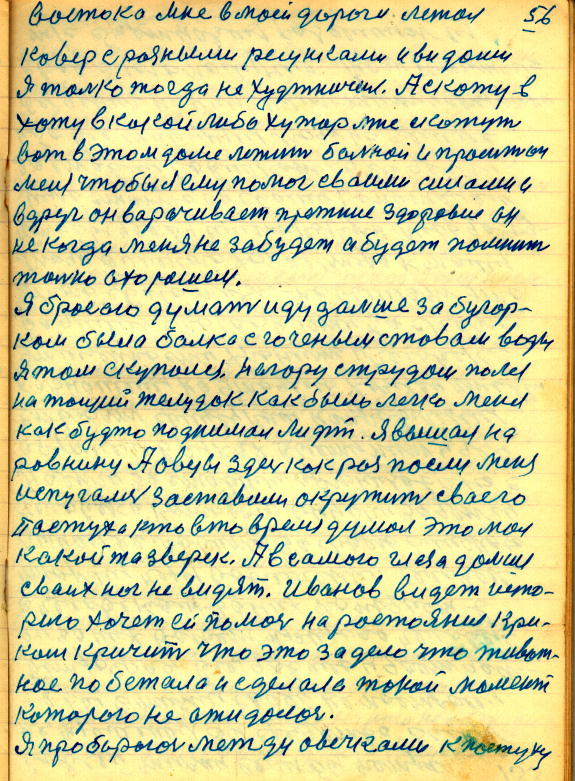 востока мне в моей дороги летал 56
ковер с разными ресунками и видами
Я толко тогда не худтничал. А скожу в
хожу в какой либо хутор мне скожут
вот в этом доме лежит болной и просит он
меня чтобы я ему помог своими силами и
вдруг он варачивает прежние здоровие он
не когда меня не забудет а будет помнит
толко о хорошем.
Я бросаю думат иду далше за бугор-
ком была балка с точеным ставам воды
я там скупался. На гору с трудом полз
на тощий желудок как было легко меня
как будто поднимал лифт. Я вышал на
ровнину А овцы здес как раз после меня
испугалис заставили окружит сваего
пастуха кто в то время думал это мол
какой та зверек. А в самого глаза далше
сваих ног не видят. Иванов видет исто-
рию хочет ей помоч на ростояния кри-
ком кричит что это за дело что живот-
ное побежала и сделала такой момент
которого не ожидалос.
Я пробралса между овечками к пастуху